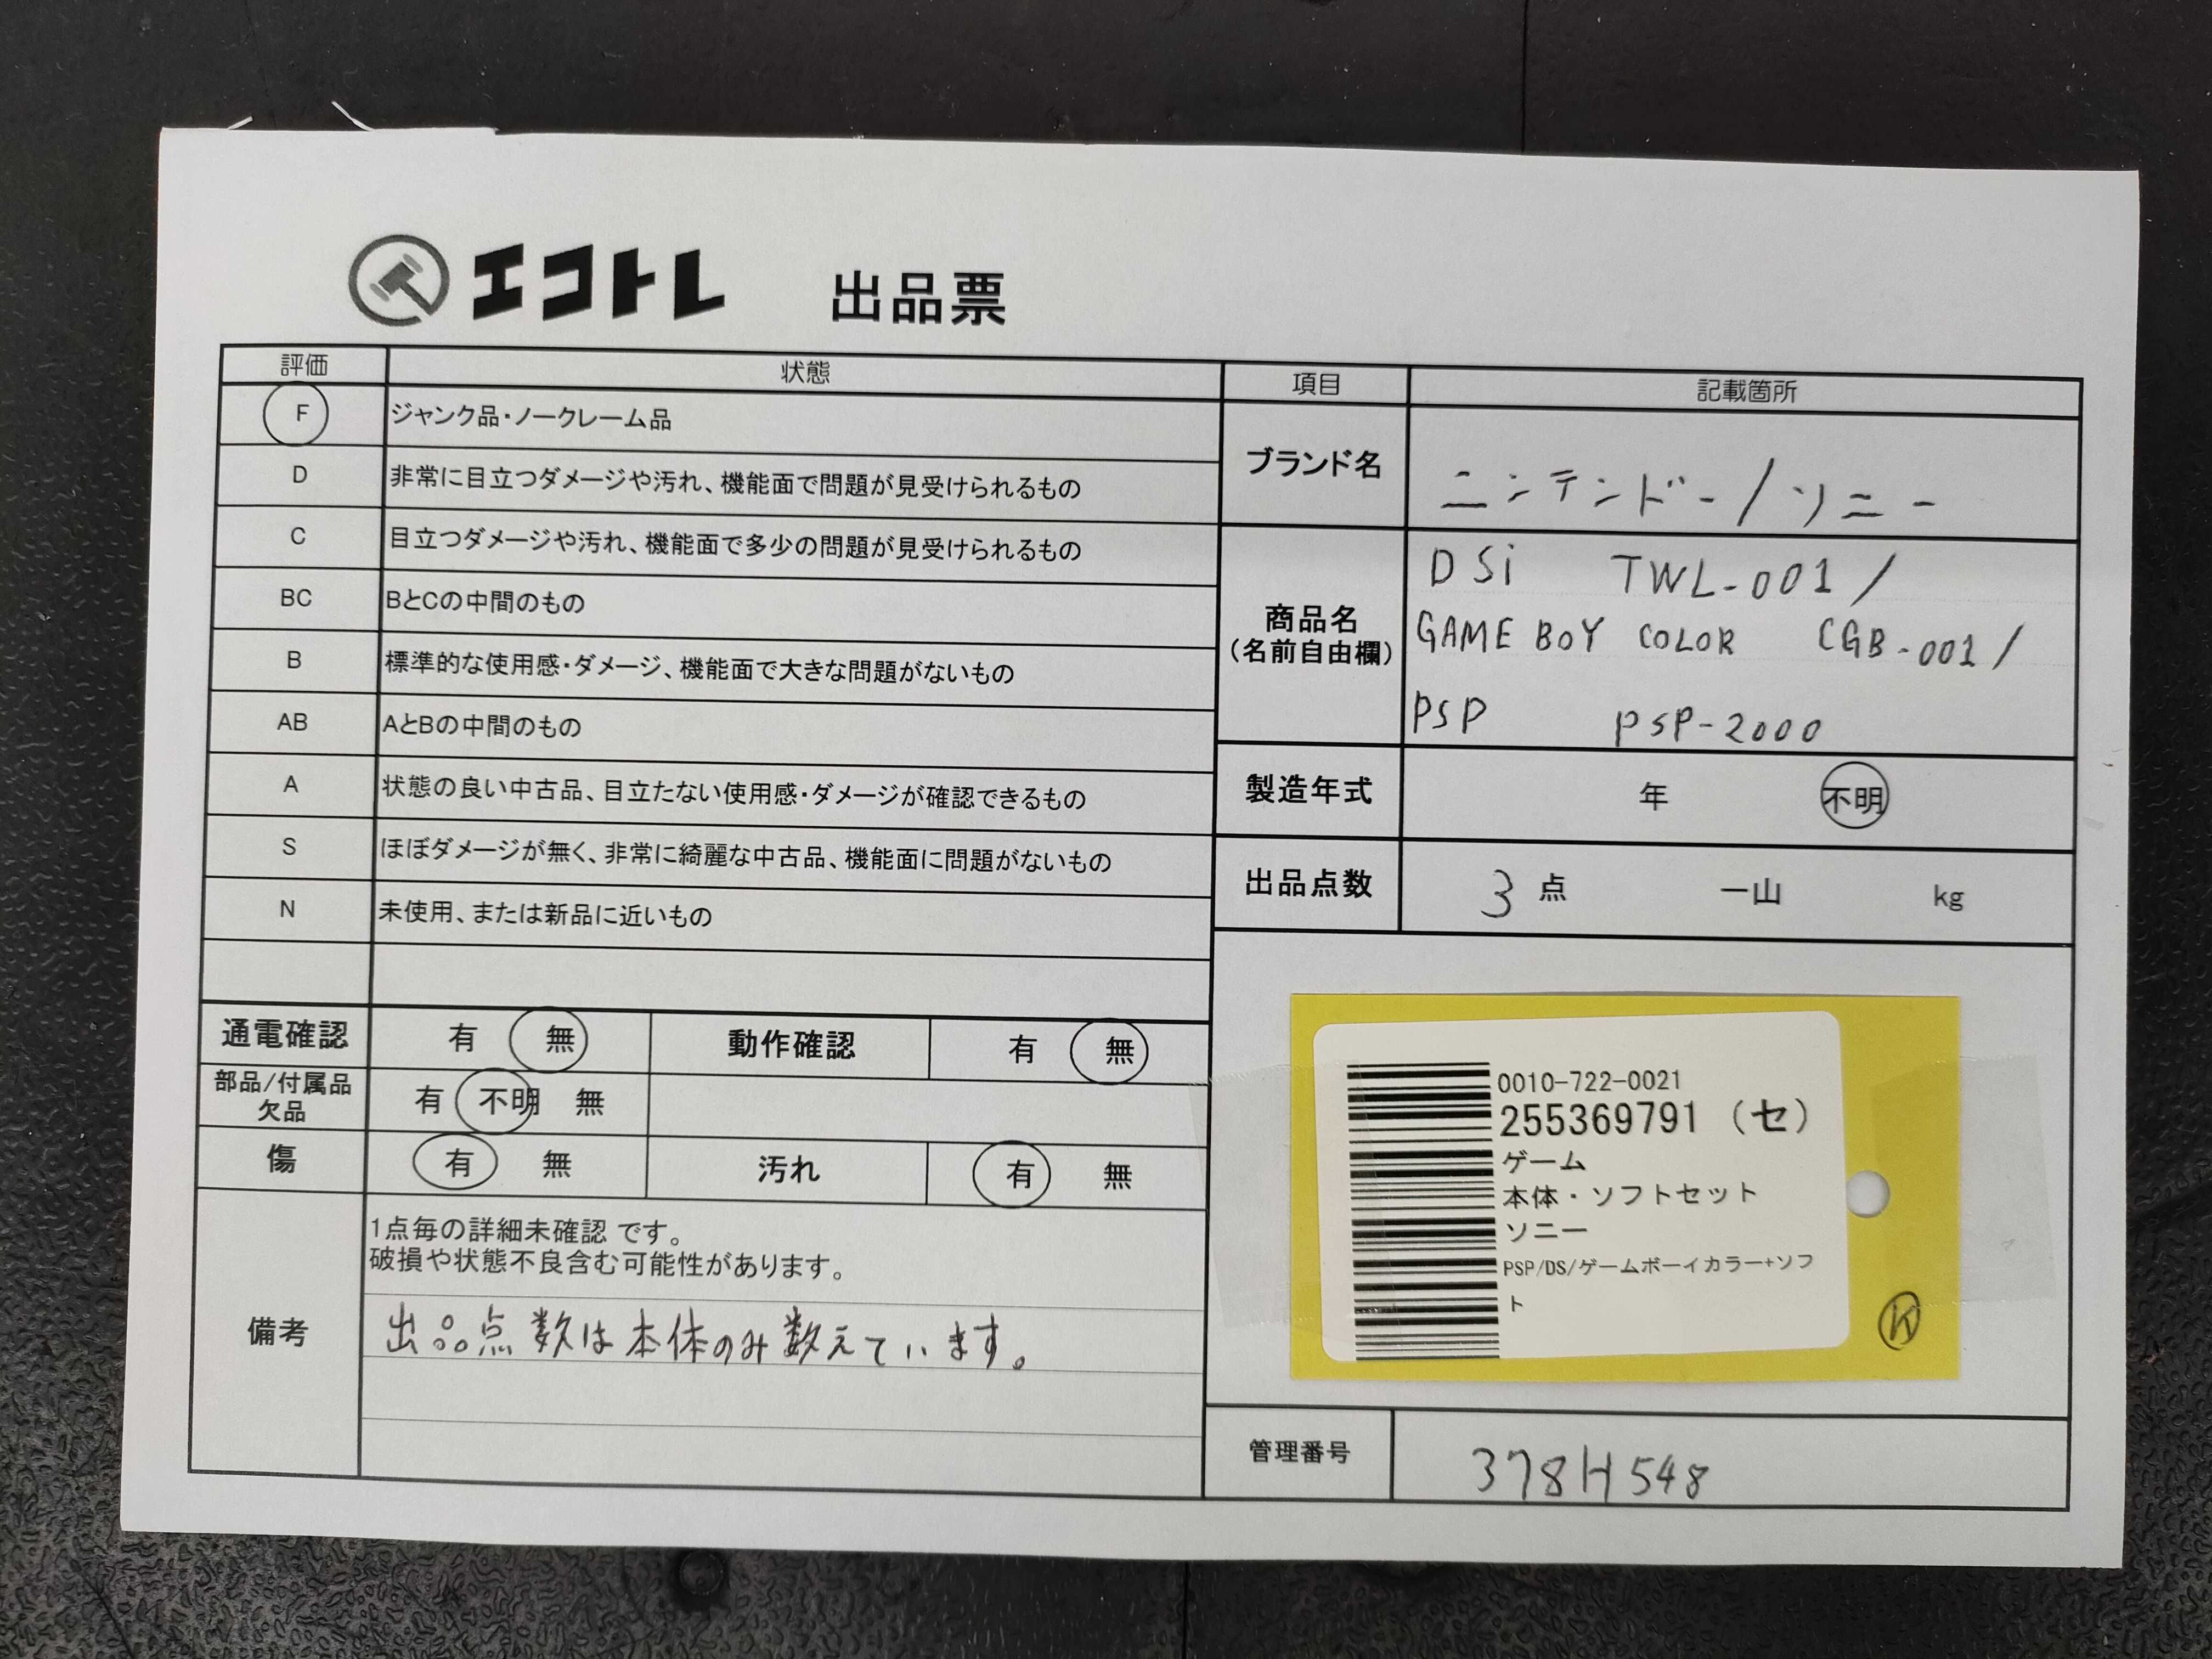 エコトレ 出品票
評価 状態
F ジャンク品・ノークレーム品
D 非常に目立つダメージや汚れ、機能面で問題が見受けられるもの
C 目立つダメージや汚れ、機能面で多少の問題が見受けられるもの
BC BとCの中間のもの
B 標準的な使用感・ダメージ、機能面で大きな問題がないもの
AB AとBの中間のもの
A 状態の良い中古品、目立たない使用感・ダメージが確認できるもの
S ほぼダメージが無く、非常に綺麗な中古品、機能面に問題がないもの
N 未使用、または新品に近いもの
通電確認 有 無 動作確認 有 無
部品/付属品
欠品 有 不明 無
傷 有 無 汚れ 有 無
備考
1点毎の詳細未確認 です。
破損や状態不良含む可能性があります。
出品点数は本体のみ数えています。
項目 記載箇所
ブランド名 ニンテンドー/ソニー
商品名
(名前自由欄)
DSi TWL-001/
GAME BOY COLOR CGB-001/
PSP PSP-2000
製造年式 年 不明
出品点数 3 点 一山 kg
0010-722-0021
255369791 (セ)
ゲーム
本体・ソフトセット
ソニー
PSP/DS/ゲームボーイカラー+ソフ
ト
K
管理番号 378H548